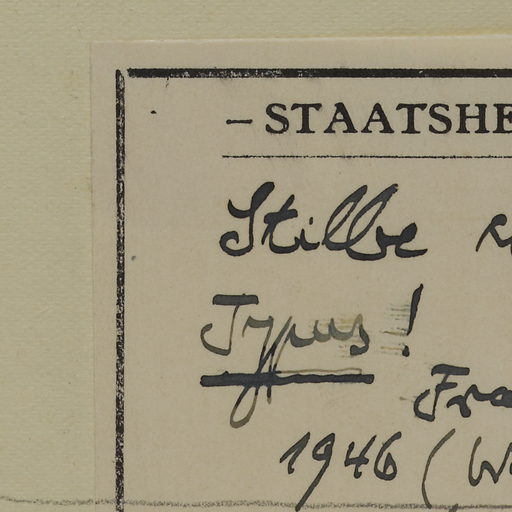 – STAATSHE
Stilbe
Typus!
Fra
1946 (W